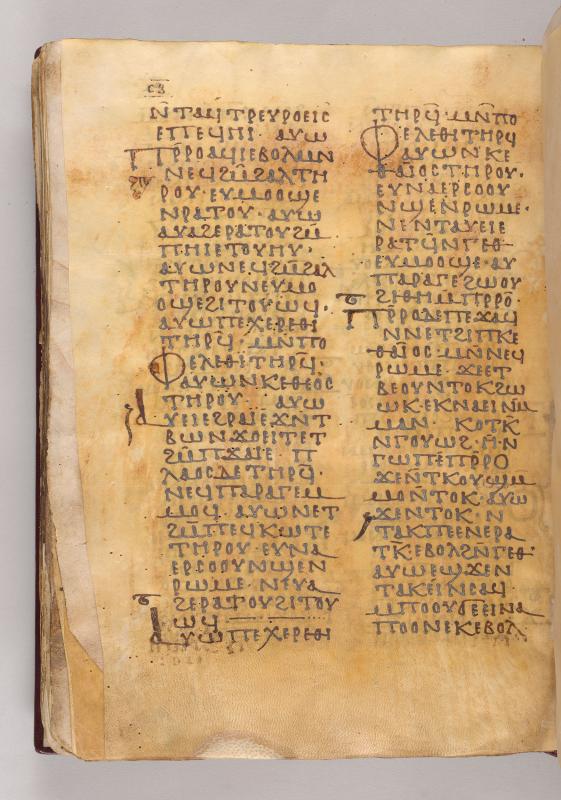 ⲥ̅ⲃ̅
ⲛ̄ⲧⲁϥⲧⲣⲉⲩⲣⲟⲉⲓⲥ
ⲉⲡⲉϥⲏⲓ· ⲁⲩⲱ
ⲡⲣ̄ⲣⲟⲁϥⲓⲉⲃⲟⲗⲙⲛ
ⲛⲉϥϩⲙ̄ϩⲁⲗⲧⲏ
ⲣⲟⲩ· ⲉⲩⲙⲟⲟϣⲉ
ⲛⲣⲁⲧⲟⲩ· ⲁⲩⲱ
ⲁⲩⲁϩⲉⲣⲁⲧⲟⲩϩⲙ
ⲡⲏⲓⲉⲧⲟⲩⲏⲩ·
ⲁⲩⲱⲛⲉϥϩⲙ̄ϩⲁⲗ
ⲧⲏⲣⲟⲩⲛⲉⲩⲙⲟ
ⲟϣⲉϩⲓⲧⲟⲩⲱϥ·
ⲁⲩⲱⲡⲉⲭⲉⲣⲉⲑⲓ
ⲧⲏⲣϥ̄· ⲙⲛ̄ⲡⲟ
ⲫⲉⲗⲉⲑⲓⲧⲏⲣϥ̄·
ⲁⲩⲱⲛⲕⲉⲅⲉⲑⲉⲟⲥ
ⲧⲏⲣⲟⲩ· ⲁⲩⲱ
ⲁⲩⲉⲓⲉϩⲣⲁⲓⲉϫⲛⲧ
ⲃⲱⲛϫⲟⲉⲓⲧⲉⲧ
ϩⲙ̄ⲡϫⲁⲓⲉ· ⲡ
ⲗⲁⲟⲥⲇⲉⲧⲏⲣϥ̄·
ⲛⲉϥⲡⲁⲣⲁⲅⲉⲙ
ⲙⲟϥ· ⲁⲩⲱⲛⲉⲧ
ϩⲙ̄ⲡⲉϥⲕⲱⲧⲉ
ⲧⲏⲣⲟⲩ· ⲉⲩⲛⲁ
ⲉⲣⲥⲟⲟⲩⲛϣⲉⲛ
ⲣⲱⲙⲉ· ⲛⲉⲩⲁ
ϩⲉⲣⲁⲧⲟⲩϩⲓⲧⲟⲩ
ⲱϥ
ⲁⲩⲱⲡⲉⲭⲉⲣⲉⲑⲓ
ⲧⲏⲣϥ̄· ⲙⲛ̄ⲡⲟ
ⲫⲉⲗⲉⲑⲓⲧⲏⲣϥ
ⲁⲩⲱⲛⲕⲉ
ⲑⲁⲓⲟⲥⲧⲏⲣⲟⲩ·
ⲉⲩⲛⲁⲉⲣⲥⲟⲟⲩ
ⲛϣⲉⲛⲣⲱⲙⲉ·
ⲛⲉⲛⲧⲁⲩⲉⲓⲉ
ⲣⲁⲧϥ̄ⲛⲅⲉⲑ
ⲉⲩⲙⲟⲟϣⲉ· ⲁⲩ
ⲡⲁⲣⲁⲅⲉϩⲱⲟⲩ
ϩⲓⲑⲏⲙⲡⲣ̄ⲣⲟ·
ⲡⲣ̄ⲣⲟⲇⲉⲡⲉϫⲁϥ
ⲛⲛⲉⲧϩⲓⲡⲕⲉ
ⲑⲁⲓⲟⲥ· ⲙⲛ̄ⲛⲉϥ
ⲣⲱⲙⲉ· ϫⲉⲉⲧ
ⲃⲉⲟⲩⲛⲧⲟⲕϩⲱ
ⲱⲕ· ⲉⲕⲛⲁⲉⲓⲛⲙ̄
ⲙⲁⲛ· ⲕⲟⲧⲕ̄
ⲛⲅⲟⲩⲱϩ· ⲙ̄ⲛ
ⲅⲱⲡⲉⲡⲣ̄ⲣⲟ
ϫⲉⲛ̄ⲧⲕⲟⲩϣⲙ
ⲙⲟⲛ̄ⲧⲟⲕ· ⲁⲩⲱ
ϫⲉⲛⲧⲟⲕ· ⲛ
ⲧⲁⲕⲡⲉⲉⲛⲉⲣⲁ
ⲧⲕ̄ⲉⲃⲟⲗϩⲛ̄ⲅⲉⲑ·
ⲁⲩⲱⲉϣϫⲉⲛ
ⲧⲁⲕⲉⲓⲛⲥⲁϥ·
ⲙⲡⲟⲟⲩⲉⲉⲓⲛⲁ
ⲡⲟⲟⲛⲉⲕⲉⲃⲟⲗ